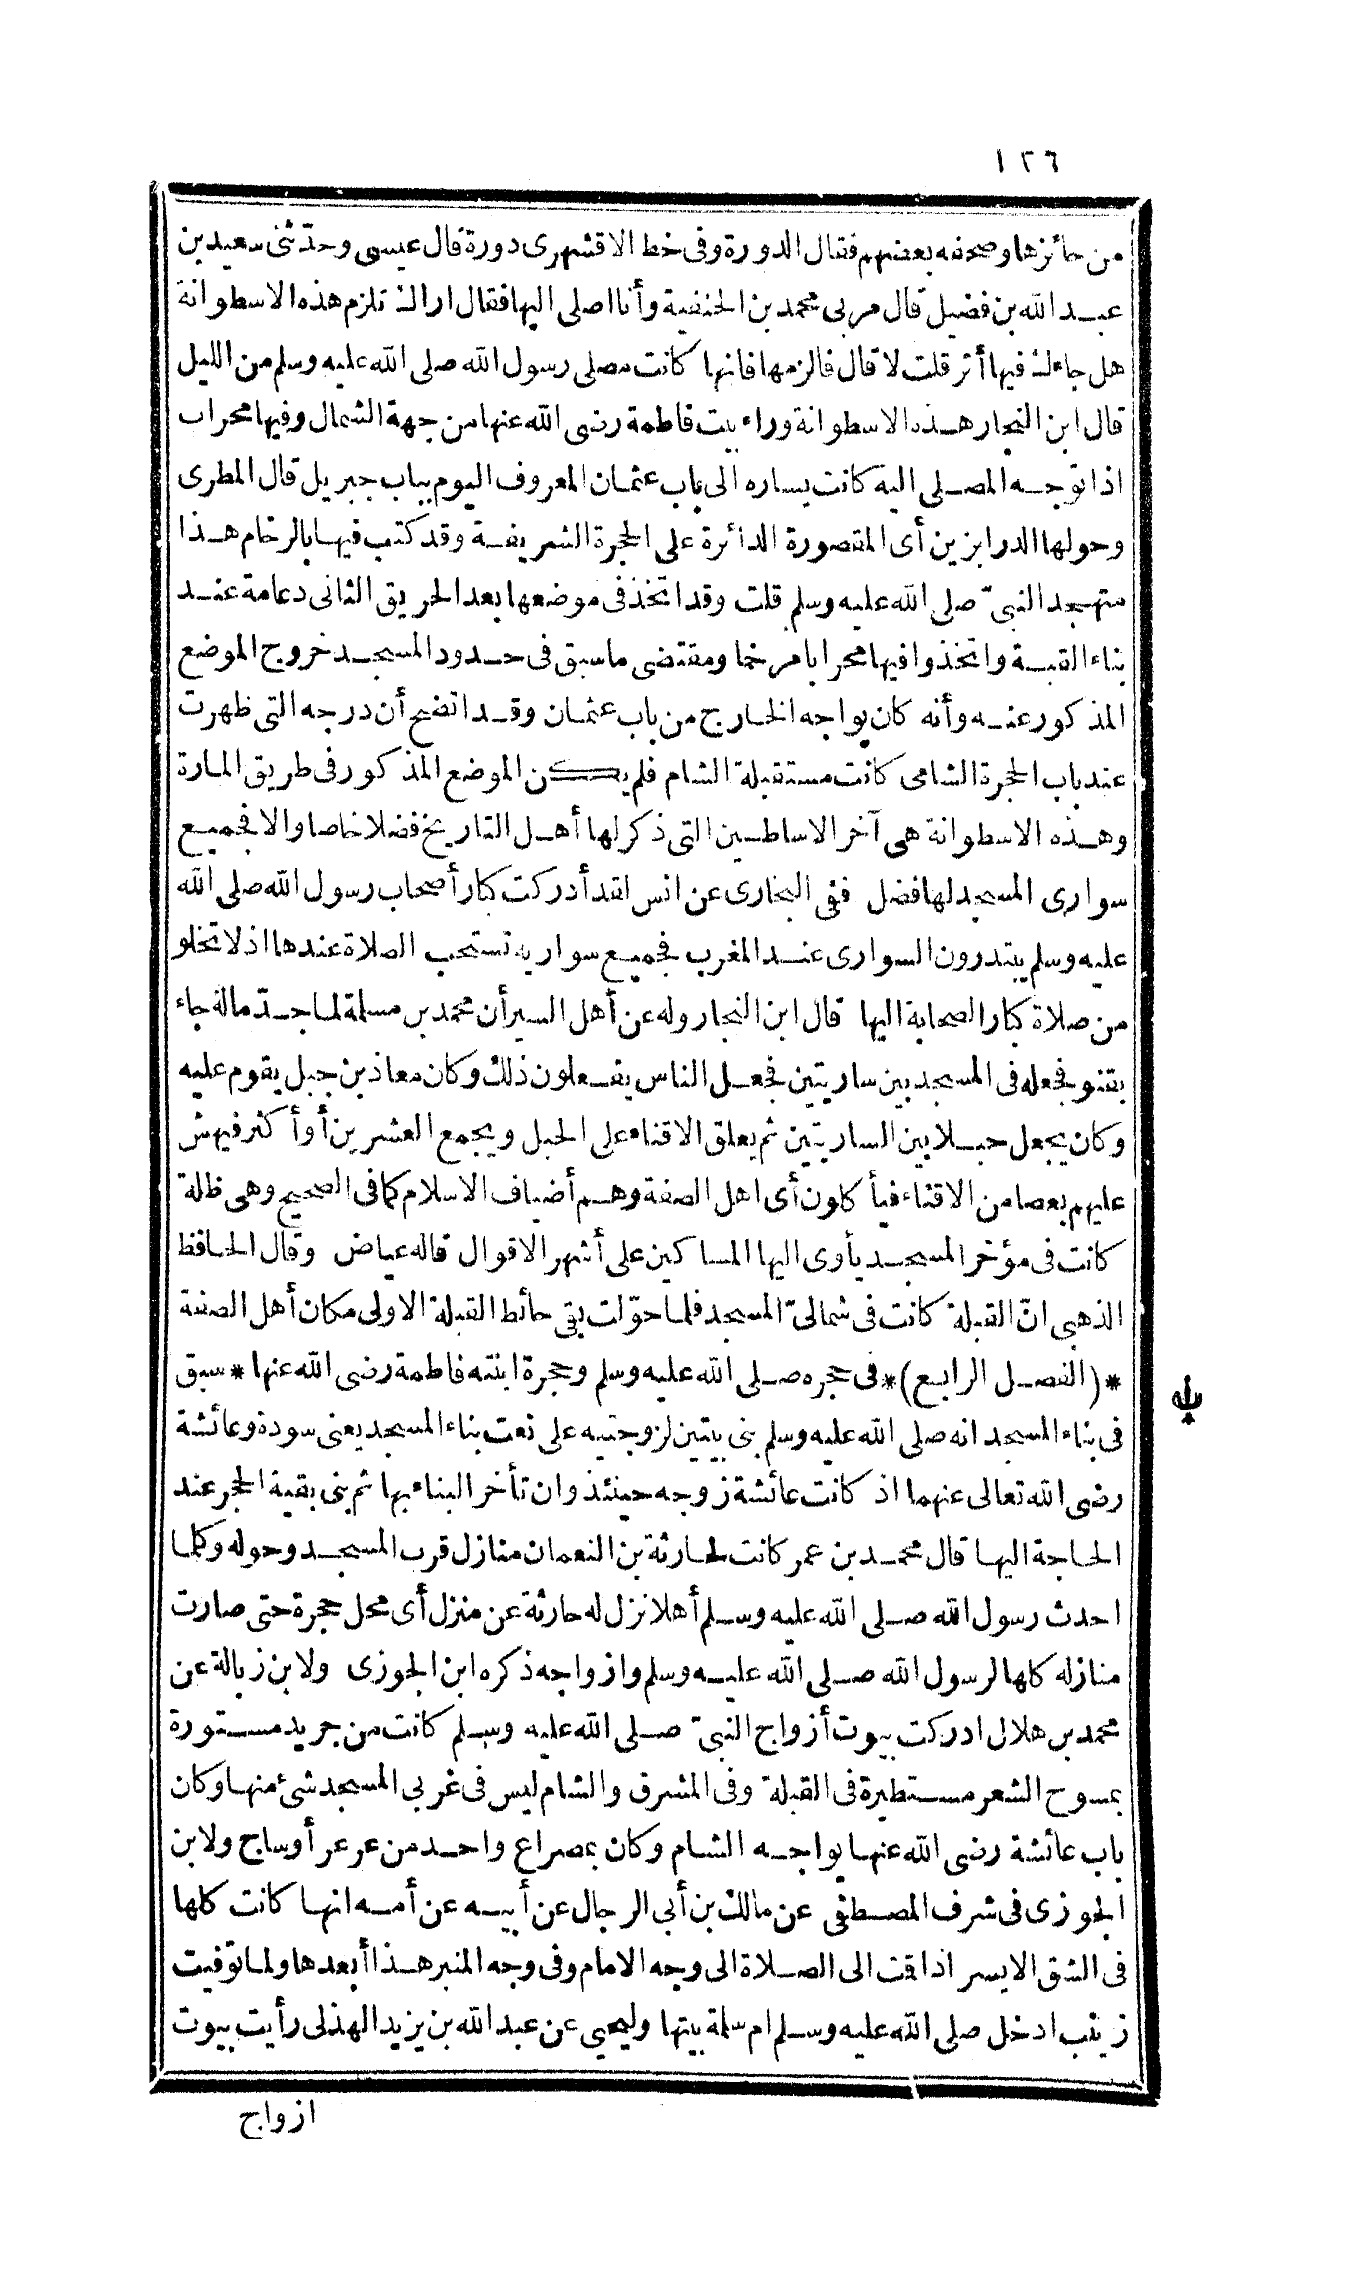 ١٢٦
من حائزها وصحفه بعضهم فقال الدورة وفى خط الاقشهرى دورة قال عيسى وحدّثنى سعيد بن
عبد الله بن فضيل قال مر بى محمد بن الحنفية وأنا اصلى اليها فقال اراك تلزم هذه الاسطوانة
هل جاءك فيها أثر قلت لا قال فالزمها فانها كانت مصلى رسول الله صلى الله عليه وسلم من الليل
قال ابن النجار هذه الاسطوانة وراء بيت فاطمة رضى الله عنها من جهة الشمال وفيها محراب
اذا توجه المصلى اليه كانت يساره الى باب عثمان المعروف اليوم بباب جبريل قال المطرى
وحولها الدرابزين أى المقصورة الدائرة على الحجرة الشريفة وقد كتب فيها بالرخام هذا
متهجد النبىّ صلى الله عليه وسلم قلت وقد اتخذ فى موضعها بعد الحريق الثانى دعامة عند
بناء القبة واتخذوا فيها محرابا مرخما ومقتضى ما سبق فى حدود المسجد خروج الموضع
المذكور عنه وأنه كان يواجه الخارج من باب عثمان وقد اتضح أن درجه التى ظهرت
عند باب الحجرة الشامى كانت مستقبلة الشام فلم يكن الموضع المذكور فى طريق المارة
وهذه الاسطوانة هى آخر الاساطين التى ذكر لها أهل التاريخ فضلا خاصا والا فجميع
سوارى المسجد لها فضل ففى البخارى عن انس لقد أدركت كبار أصحاب رسول الله صلى الله
عليه وسلم يبتدرون السوارى عند المغرب فجميع سواريه تستحب الصلاة عندها اذ لا تخلو
من صلاة كبار الصحابة اليها قال ابن النجار وله عن أهل السير أن محمد بن مسلمة لما جدّ ماله جاء
بقنو فجعله فى المسجد بين ساريتين فجعل الناس يفعلون ذلك وكان معاذ بن جبل يقوم عليه
وكان يجعل حبلا بين الساريتين ثم يعلق الاقناء على الحبل ويجمع العشرين أو أكثر فيهش
عليهم بعصا من الاقناء فيأكلون أى اهل الصفة وهم أضياف الاسلام كما فى الصحيح وهى ظلة
كانت فى مؤخر المسجد يأوى اليها المساكين على أشهر الاقوال قاله عياض وقال الحافظ
الذهبى انّ القبلة كانت فى شمالىّ المسجد فلما حوّلت بقى حائط القبلة الاولى مكان أهل الصفة
*(الفصل الرابع)* فى حجره صلى الله عليه وسلم وحجرة ابنته فاطمة رضى الله عنها * سبق
فى بناء المسجد انه صلى الله عليه وسلم بنى بيتين لزوجتيه على نعت بناء المسجد يعنى سودة وعائشة
رضى الله تعالى عنهما اذ كانت عائشة زوجه حينئذ وان تأخر البناء بها ثم بنى بقية الحجر عند
الحاجة اليها قال محمد بن عمر كانت لحارثة بن النعمان منازل قرب المسجد وحوله وكلما
احدث رسول الله صلى الله عليه وسلم أهلا نزل له حارثة عن منزل أى محل حجرة حتى صارت
منازله كلها لرسول الله صلى الله عليه وسلم وازواجه ذكره ابن الجوزى ولابن زبالة عن
محمد بن هلال ادركت بيوت أزواج النبىّ صلى الله عليه وسلم كانت من جريد مستورة
بمسوح الشعر مستطيرة فى القبلة وفى المشرق والشام ليس فى غربى المسجد شىء منها وكان
باب عائشة رضى الله عنها يواجه الشام وكان بمصراع واحد من عرعر أو ساج ولابن
الجوزى فى شرف المصطفى عن مالك بن أبى الرجال عن أبيه عن أمه انها كانت كلها
فى الشق الايسر اذا قمت الى الصلاة الى وجه الامام وفى وجه المنبر هذا أبعدها ولما توفيت
زينب ادخل صلى الله عليه وسلم ام سلمة بيتها وليحيى عن عبد الله بن يزيد الهذلى رأيت بيوت
ازواج